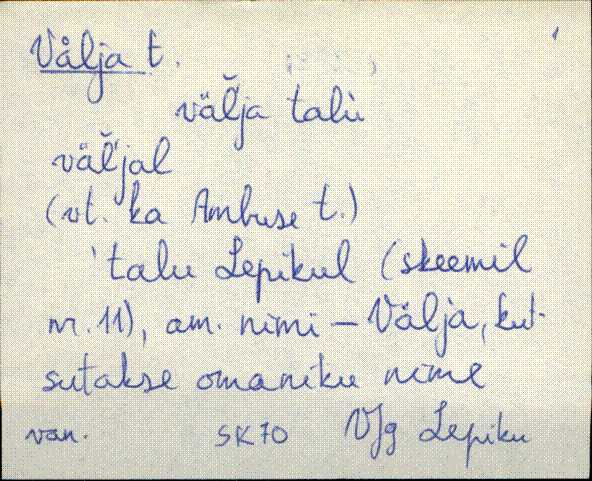 Välja t.
väľja talù
väľjal
(vt. ka Ambuse t.)
'talu Lepikul (skeemil
nr. 11), am. nimi – Välja, kut-
sutakse omaniku nime
van. SK70 VJg Lepiku